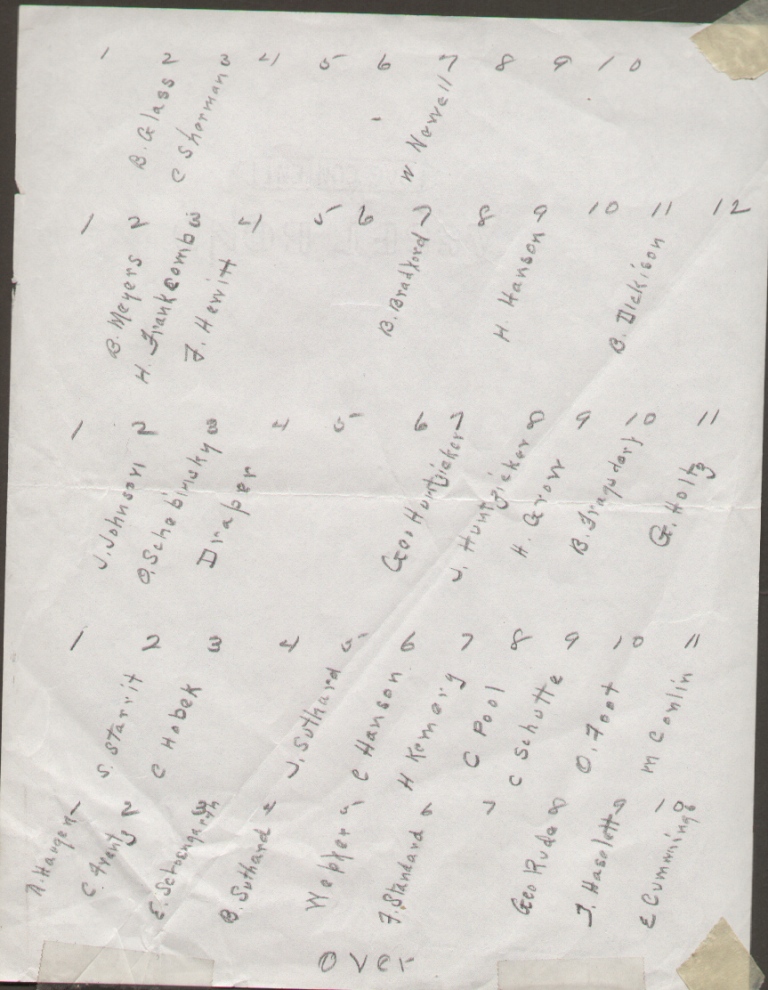 1 2 3 4 5 6 7 8 9 10
B. Glass C Shorman W. Newell
1 2 3 4 5 6 7 8 9 10 11 12
B. Meyers H. Frankcomb J. Hewitt B. Bradford H. Hanson B. Dickison
1 2 3 4 5 6 7 8 9 10 11
J. Johnson O. Schobinsky Draper Geo Huntzieker J. Huntzieker H. Grow B. G. Holtz
1 2 3 4 5 6 7 8 9 10 11
S. Starrit C Hobek J. Suthard C Hanson H Kemery C Pool C Schutte O. Foot M Conlin
1 2 3 4 5 6 7 8 9 10
Haugen C. Frantz E. Schoengarth B. Suthard Wepker F. Standard Geo Rude J. Haselett E Cummings
over